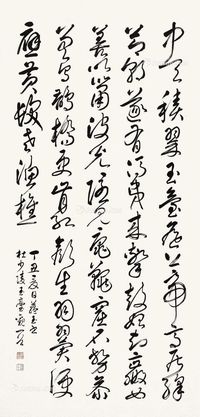 中天積翠玉臺遥上帝高居絳
節朝遂有馮夷來擊鼓始知嬴女
善吹簫波光隱見黿鼉窟石勢參
差烏鵲橋更肯紅顏生羽翼便
應黃髮老漁樵
丁丑夏日
杜少陵玉臺觀一首